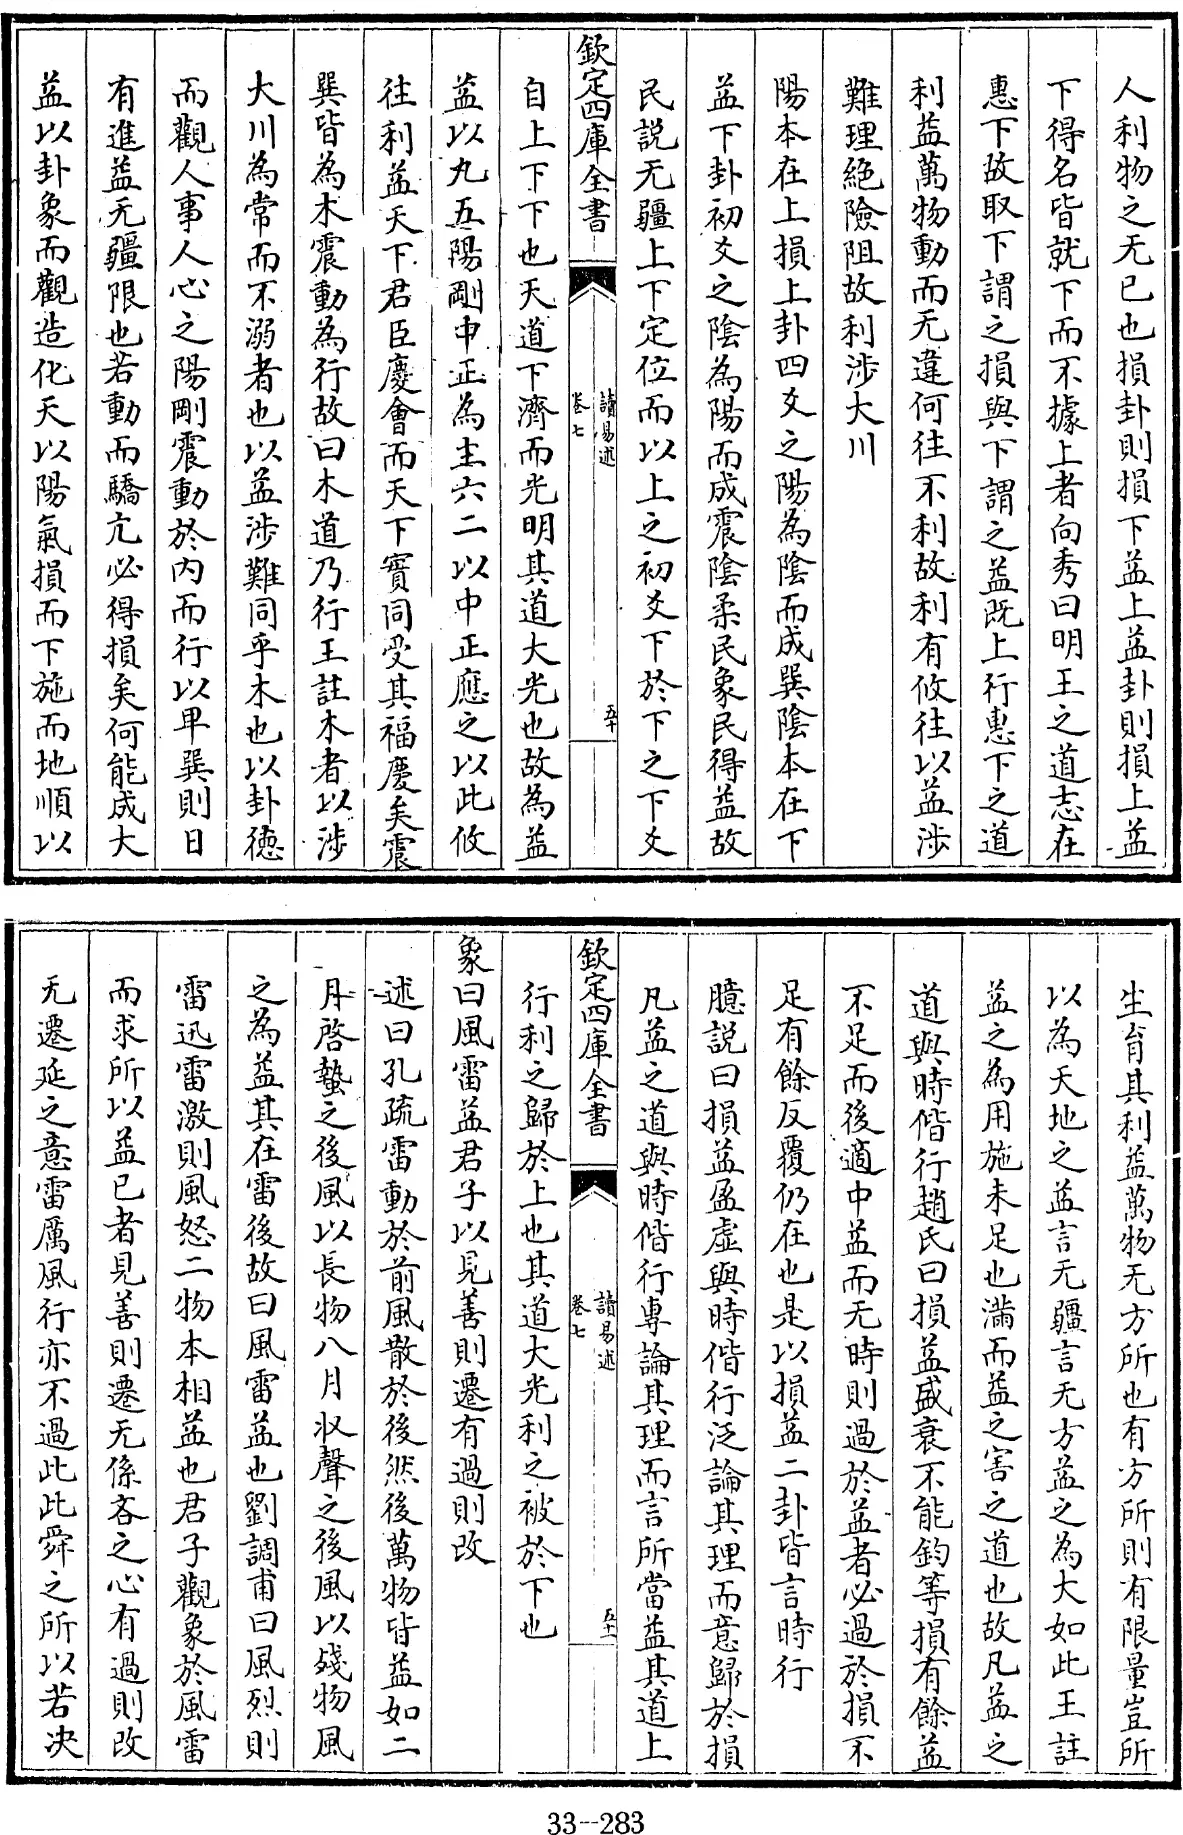 人利物之无已也損卦則損下益上益卦則損上益
下得名皆就下而不據上者向秀曰明王之道志在
惠下故取下謂之損與下謂之益既上行惠下之道
利益萬物動而无違何往不利故利有攸往以益涉
難理絶險阻故利涉大川
陽本在上損上卦四爻之陽為陰而成巽陰本在下
益下卦初爻之陰為陽而成震陰柔民象民得益故
民説无疆上下定位而以上之初爻下於下之下爻
欽定四庫全書
讀易述
卷七
五十
自上下下也天道下濟而光明其道大光也故為益
益以九五陽剛中正為主六二以中正應之以此攸
往利益天下君臣慶會而天下實同受其福慶矣震
巽皆為木震動為行故曰木道乃行王註木者以涉
大川為常而不溺者也以益涉難同乎木也以卦徳
而觀人事人心之陽剛震動於内而行以卑巽則日
有進益无疆限也若動而驕亢必得損矣何能成大
益以卦象而觀造化天以陽氣損而下施而地順以
生育其利益萬物无方所也有方所則有限量豈所
以為天地之益言无疆言无方益之為大如此王註
益之為用施未足也滿而益之害之道也故凡益之
道與時偕行趙氏曰損益盛衰不能鈞等損有餘益
不足而後適中益而无時則過於益者必過於損不
足有餘反覆仍在也是以損益二卦皆言時行
臆説曰損益盈虛與時偕行泛論其理而意歸於損
凡益之道與時偕行專論其理而言所當益其道上
欽定四庫全書
讀易述
卷七
五十一
行利之歸於上也其道大光利之被於下也
象曰風雷益君子以見善則遷有過則改
述曰孔疏雷動於前風散於後然後萬物皆益如二
月啓蟄之後風以長物八月收聲之後風以殘物風
之為益其在雷後故曰風雷益也劉調甫曰風烈則
雷迅雷激則風怒二物本相益也君子觀象於風雷
而求所以益已者見善則遷无係吝之心有過則改
无遷延之意雷厲風行亦不過此此舜之所以若决
33--283